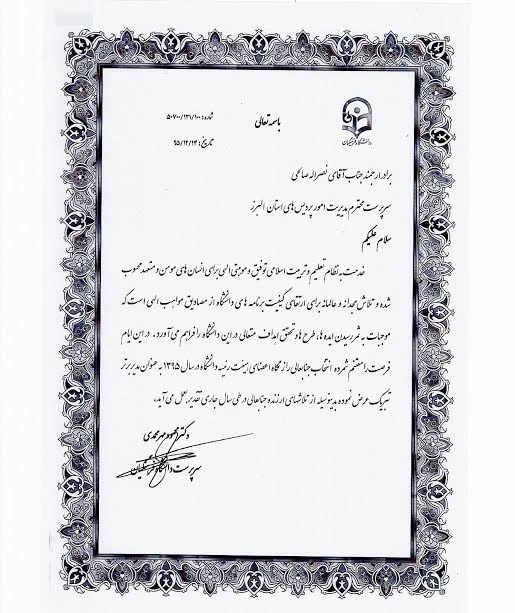 باسمه تعالی
شماره: ۵۰۷۰۰/۱۳۱/۱۰۰
تاریخ: ۹۵/۱۲/۱۴
دانشگاه فرهنگیان
برادر ارجمند جناب آقای نصراله صالحی
سرپرست محترم مدیریت امور پردیس های استان البرز
سلام علیکم
خدمت به نظام تعلیم و تربیت اسلامی توفیق و موهبتی الهی برای انسان های مومن و متعهد محسوب
شده و تلاش مجدانه و عالمانه برای ارتقای کیفیت برنامه های دانشگاه از مصادیق مواهب الهی است که
موجبات به ثمر رسیدن ایده ها، طرح ها و تحقق اهداف متعالی در این دانشگاه را فراهم می آورد. در این ایام
فرصت را مغتنم شمرده انتخاب جنابعالی را از نگاه اعضای هیئت رئیسه دانشگاه در سال ۱۳۹۵ به عنوان مدیر برتر
تبریک عرض نموده بدینوسیله از تلاشهای ارزنده جنابعالی در طی سال جاری تقدیر بعمل می آید.
دکتر محمود مهرمحمدی
سرپرست دانشگاه فرهنگیان